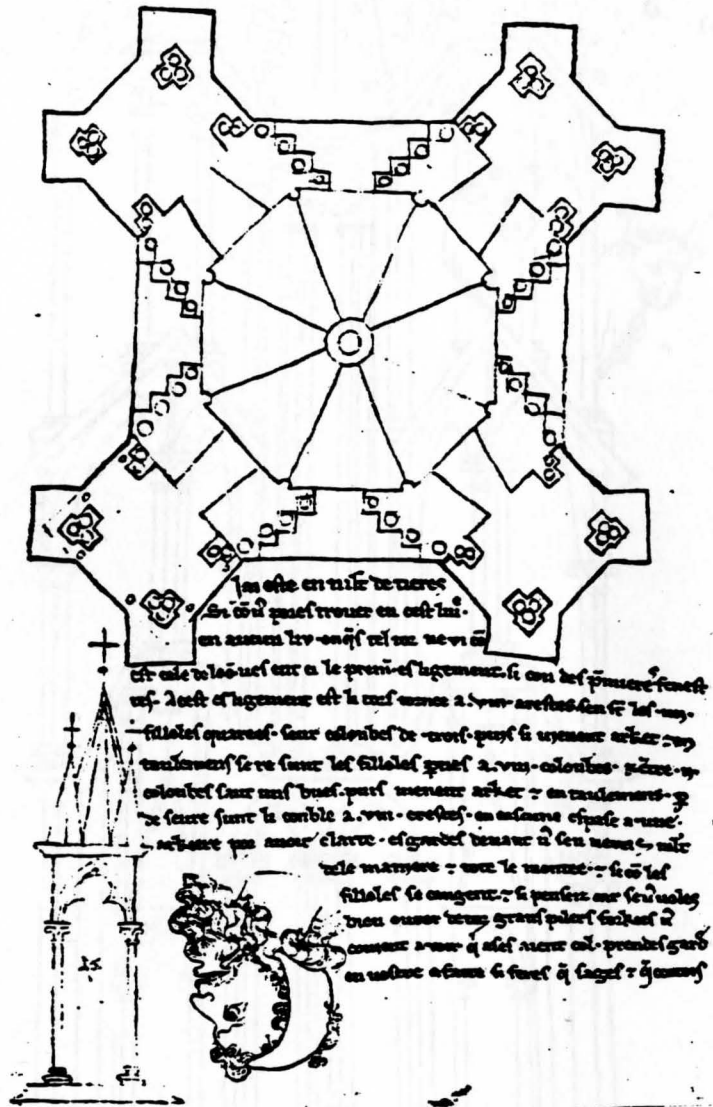 Jai este en mlt de tieres
si cō vͦ pores trover en cest liu̇e.
en aucun liu onq̄s tel tor ne vi cō
est cele de loō ves ent ci le prem̄. esligement. si con des p̄mieres fenest
res. A cest esligement est li tors tornee a .viii. arestes sen sōt les .iiii.
filloles quarees. seur colonbes de trois. puis si vienent arket ꝛ en
taulemens se re sunt les filloles pties a .viii. colonbes. ꝛ entre .ii.
colonbes saut uns bues. puis vienent arket ꝛ entaulemens. ꝑ
de seure sunt li conble a .viii. crestes. en cascune espase a une
arkiere por avoir clarte. esgardes devant vͦ sen veres mlt
dele maniere ꝛ tote le montee. ꝛ si cō les
filloles se cangent. ꝛ si penseiz car se vͦ voles
bien ovrer de toz grans pilers forkies vͦ
covient avoir q̄ ases aient col. prendes gard
en vostre afaire si feres q̄ sages ꝛ q̄ cortois